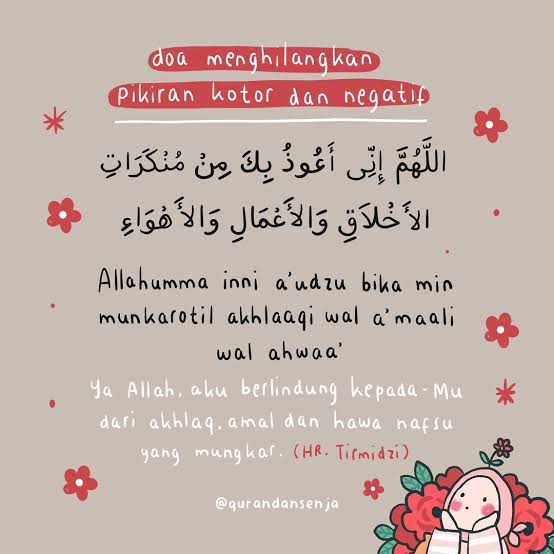 doa menghilangkan
pikiran kotor dan negatif
اللَّهُمَّ إِنِّى أَعُوذُ بِكَ مِنْ مُنْكَرَاتِ
الأَخْلاَقِ وَالأَعْمَالِ وَالأَهْوَاءِ
Allahumma inni a'udzu bika min
munkarotil akhlaaqi wal a'maali
wal ahwaa'
Ya Allah, aku berlindung kepada-Mu
dari akhlaq, amal dan hawa nafsu
yang mungkar. (HR. Tirmidzi)
@qurandansenja